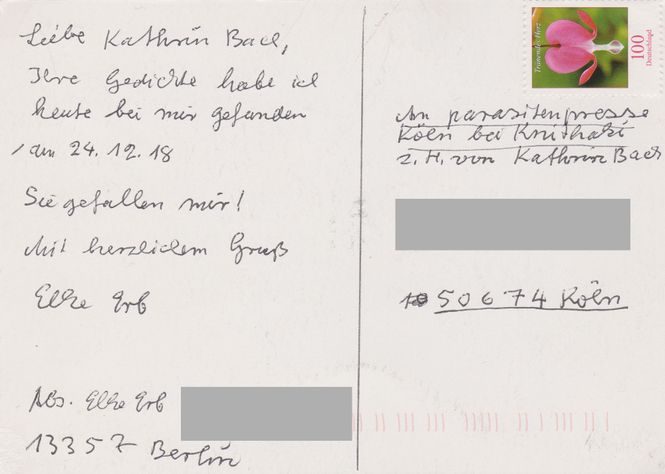 Liebe Kathrin Bach,
Ihre Gedichte habe ich
heute bei mir gefunden
/ am 24.12.18
Sie gefallen mir!
Mit herzlichem Gruß
Elke Erb
Abs. Elke Erb
13357 Berlin
Tränendes Herz
100
Deutschland
An parasitenpresse
Köln bei
z. H. von Kathrin Bach
50674 Köln